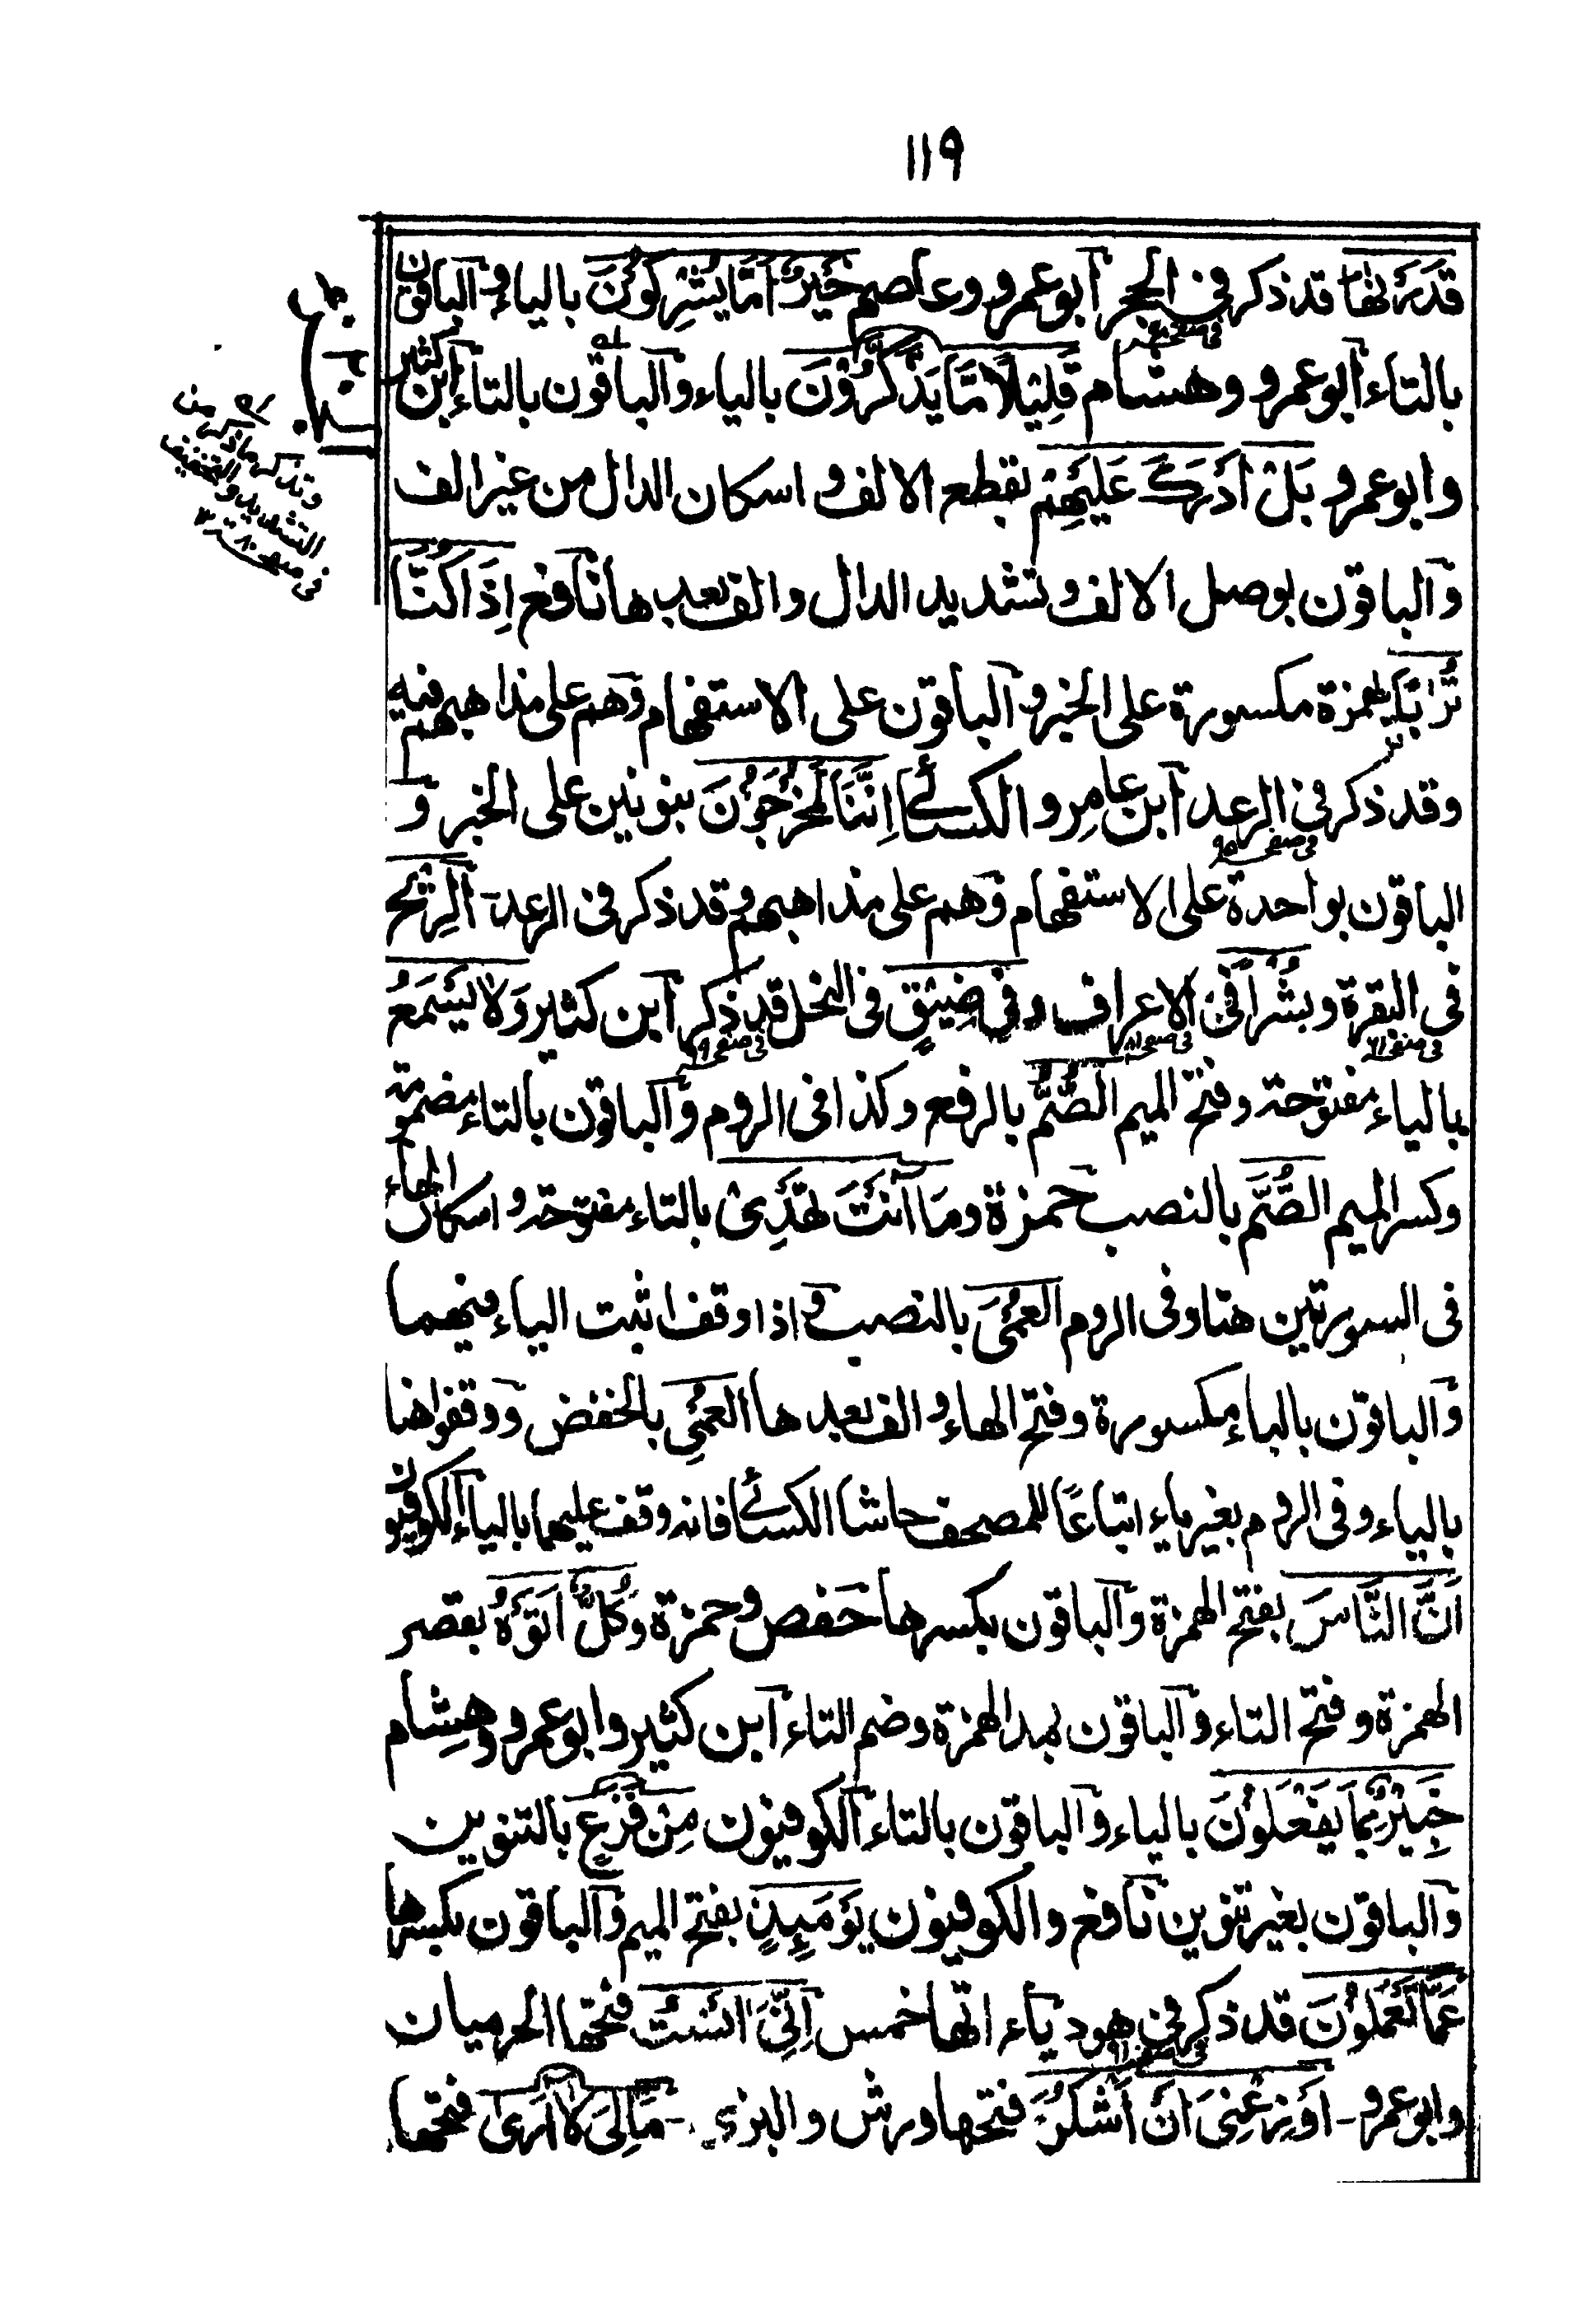 ١١٩
قَدَّرْنٰهَا قد ذكر فى الحجر أبو عمرو وعاصم خَيْرٌ اَمَّا يُشْرِكُوْنَ بالياء والباقون
فى صفحه
بالتاء أبو عمرو وهشام قَلِيْلًا مَّا يَذَّكَّرُوْنَ بالياء والباقون بالتاء ابن كثير
وابو عمرو بَلْ اَدْرَكَ عَلَيْهِمْ بقطع الالف و اسكان الدال من غير الف
والباقون بوصل الالف وتشديد الدال والف بعدها نافع اِذَا كُنَّا
تُرَابًا بهمزة مكسورة على الخبر والباقون على الاستفهام وهم على مذاهبهم فيه
وقد ذكر فى الرعد ابن عامر و الكسائے اِنَّنَا لَمُخْرَجُوْنَ بنونين على الخبر و
فى صفحه ٩٥
الباقون بواحدة على الاستفهام وهم على مذاهبهم وقد ذكر فى الرعد الرِّيْحَ
فى البقرة و بُشْرًا فى الاعراف و فِى ضِيْقٍ فى النحل قد ذكر ابن كثير وَلَا يَسْمَعُ
فى صفحه ٧١ فى صفحه ٨١ فى صفحه
بالياء مفتوحة وفتح الميم الصُّمُّ بالرفع وكذا فى الروم والباقون بالتاء مضمومة
وكسر الميم الصُّمَّ بالنصب حمزة ومَا اَنْتَ تَهْدِىْ بالتاء مفتوحة و اسكان الهاء
فى السورتين هنا وفى الروم العُمْىَ بالنصب و اذا وقف اثبت الياء فيهما
والباقون بالباء مكسورة وفتح الهاء و الف بعدها العُمْىِ بالخفض ووقفوا هنا
بالياء وفى الروم بغير ياء اتباعًا للمصحف حاشا الكسائے فانه وقف عليهما بالياء الكوفيون
اَنَّ النَّاسَ بفتح الهمزة والباقون بكسرها حفص وحمزة وَكُلٌّ اَتَوْهُ بقصر
الهمزة و فتح التاء والباقون بمد الهمزة وضم التاء ابن كثير وابو عمرو وهِشام
خَبِيْرٌۢ بِمَا يَفْعَلُوْنَ بالياء والباقون بالتاء الكوفيون مِنْ فَزَعٍ بالتنوين
والباقون بغير تنوين نافع والكوفيون يَوْمَئِذٍ بفتح الميم والباقون بكسرها
عَمَّا تَعْمَلُوْنَ قد ذكر فى هود ياء اتها خمس اِنِّىَ اٰنَسْتُ فتحها الحرميان
فى صفحه
وابو عمرو - اَوْزِعْنِىَ اَنْ اَشْكُرَ فتحها ورش والبزى - مَالِىَ لَا اَرَى فتحها